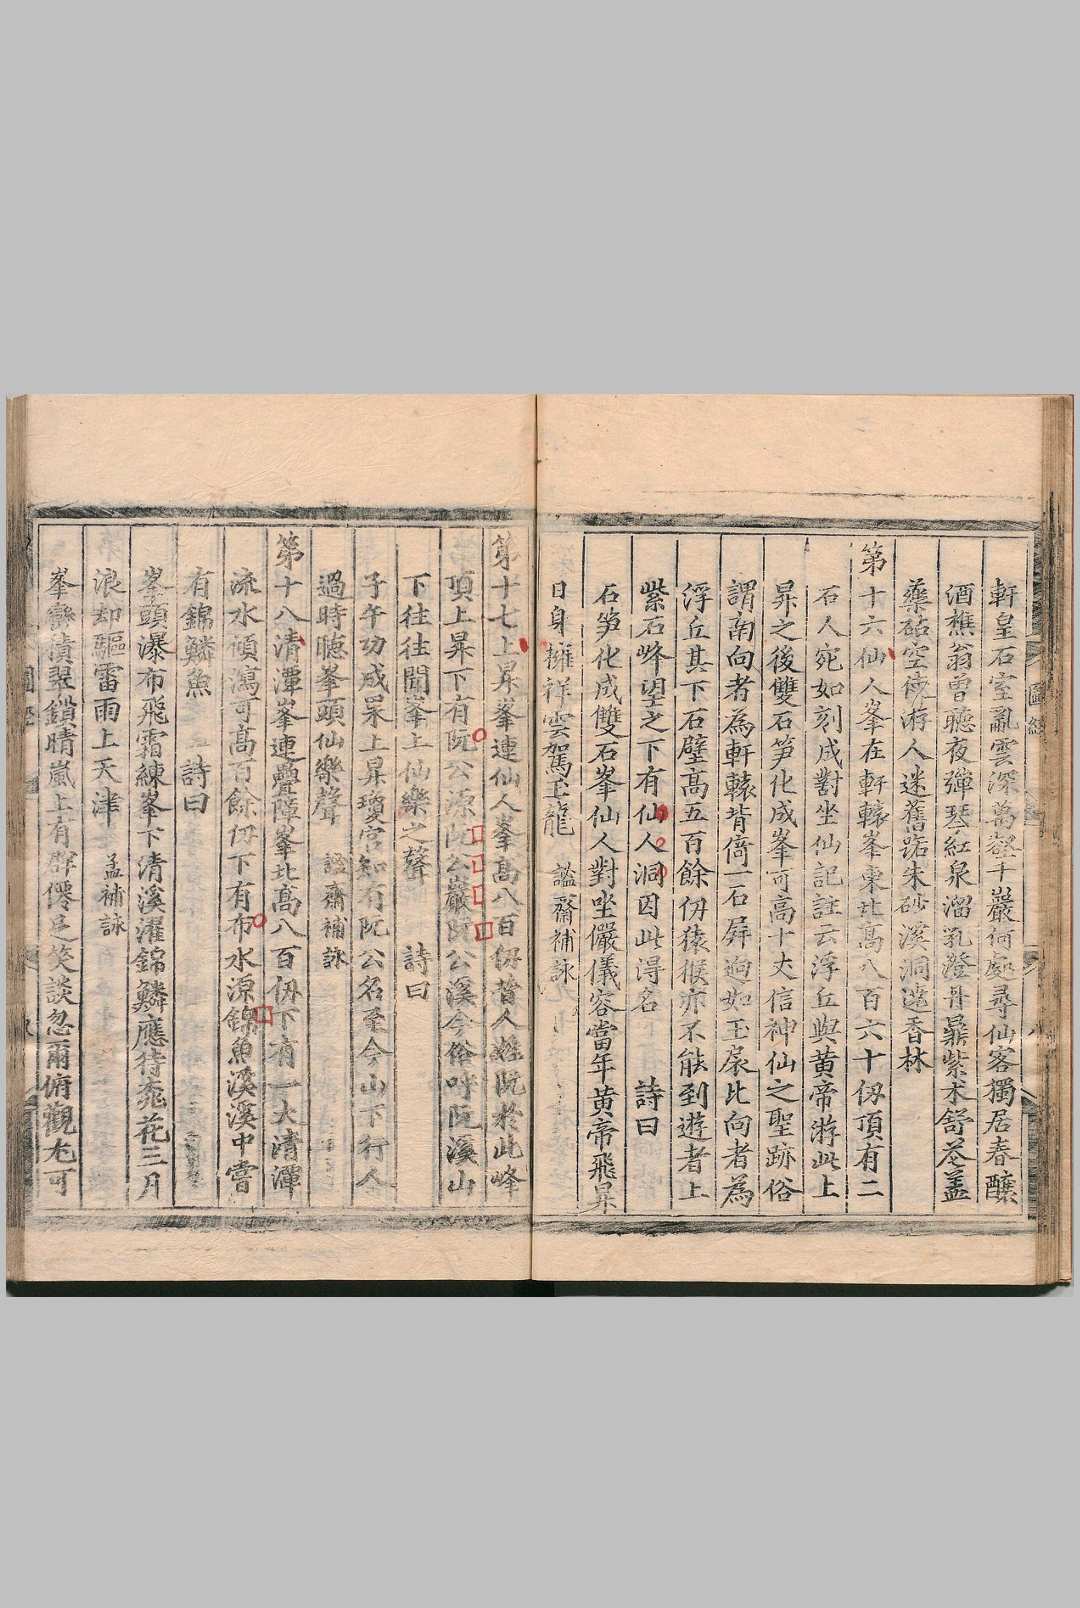 軒皇石室亂雲深萬壑千巖何處尋仙客獨居春釀
酒樵翁曽聽夜彈琴紅泉溜乳澄丹鼎紫术舒苓盖
藥砧空徒游人迷舊路朱砂溪洞遶香林
第十六仙人峯在軒轅峯東北髙八百六十仭頂有二
石人宛如刻成對坐仙記註云浮丘與黄帝游此上
昇之後雙石笋化成峯可高十丈信神仙之聖跡俗
謂南向者為軒轅背倚一石屏逈如玉扆北向者為
浮丘其下石壁髙五百餘仭猿猴亦不能到遊者上
紫石峰望之下有仙人洞因此淂名　詩曰
石笋化成雙石峯仙人對坐儼儀容當年黄帝飛昇
日身擁祥雲駕玉龍　謐齋補詠
第十七上昇峯連仙人峯髙八百仭昔人姓阮於此峰
頂上昇下有阮公源阮公巖阮公溪今俗呼阮溪山
下往往聞峯上仙樂之聲　詩曰
子午功成果上昇瓊宮知有阮公名至今山下行人
過時聴峯頭仙樂聲　謐齋補詠
第十八清潭峯連疊障峯北髙八百仭下有一大清潭
流水傾瀉可髙百餘仭下有布水源錦魚溪溪中嘗
有錦鱗魚　詩曰
峯頭瀑布飛霜練峯下清溪濯錦鱗應待桃花三月
浪却驅雷雨上天津　孟補詠
峯巒積翠鎖晴嵐上有群僊足笑談忽爾俯觀尤可
圖經